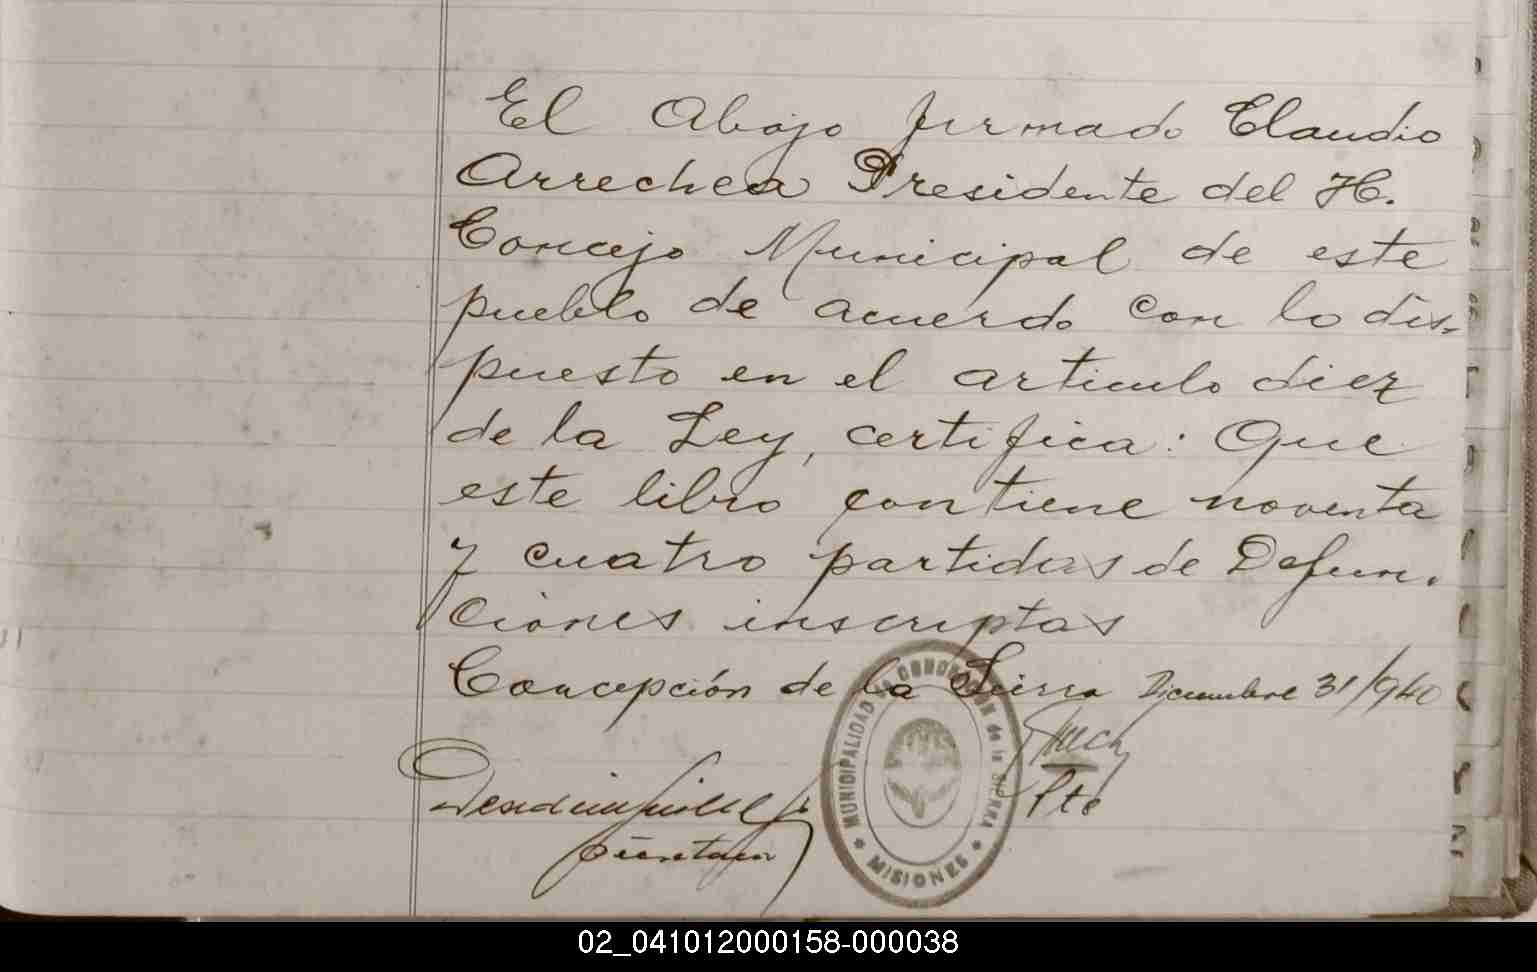 El Abajo firmado Claudio
Arrechea Presidente del H.
Concejo Municipal de este
pueblo de acuerdo con lo dis-
puesto en el articulo diez
de la Ley, certifica: Que
este libro contiene noventa
y cuatro partidas de Defun.
ciones inscriptas
Concepción de la Sierra Diciembre 31/940
MUNICIPALIDAD de CONCEPCION de la SIERRA
* MISIONES *
Pte
Secretario
02_041012000158-000038